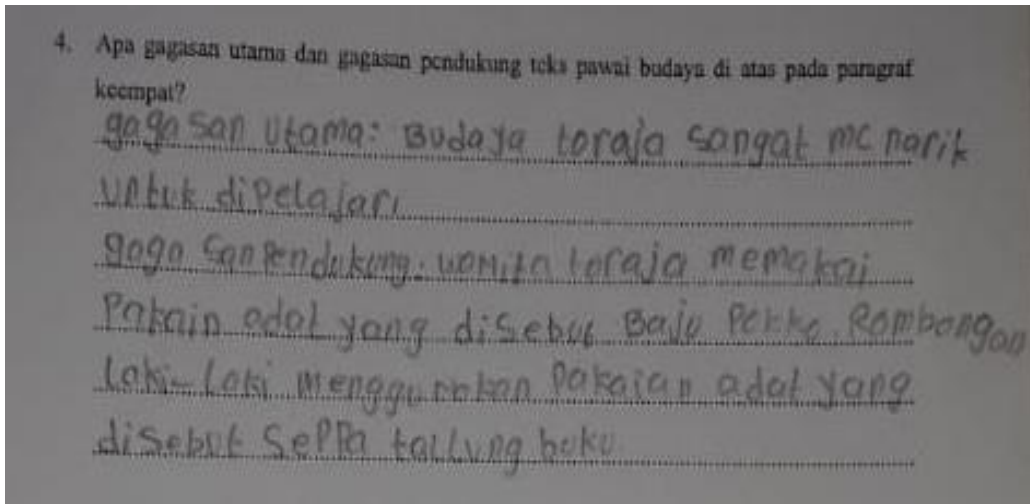 4. Apa gagasan utama dan gagasan pendukung teks pawai budaya di atas pada paragraf
keempat?
gagasan utama: Budaya toraja sangat menarik
untuk dipelajari
gagasan Pendukung: wanita toraja memakai
Pakain adat yang disebut Baju Pokko. Rombongan
Laki-Laki menggunakan Pakaian adat yang
disebut Seppa tallung buku